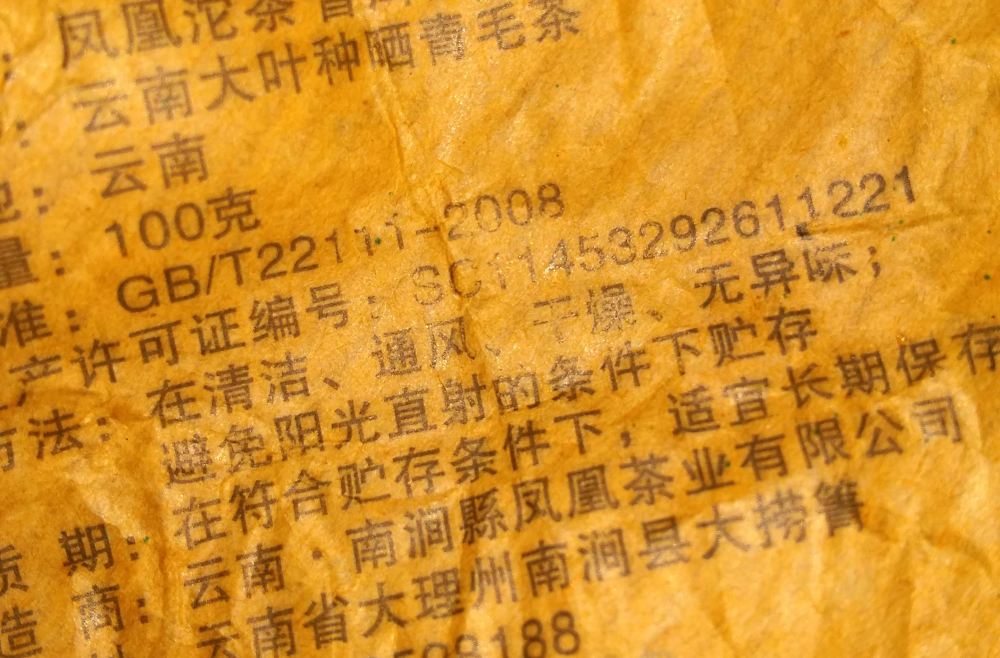 ：凤凰沱茶
：云南大叶种晒青毛茶
：云南
量：100克
准：GB/T22111-2008
产许可证编号：SC11453292611221
方法：在清洁、通风、干燥、无异味；
避免阳光直射的条件下贮存
质 期：在符合贮存条件下，适宜长期保存
造 商：云南·南涧縣凤凰茶业有限公司
云南省大理州南涧县大捞箐
8188